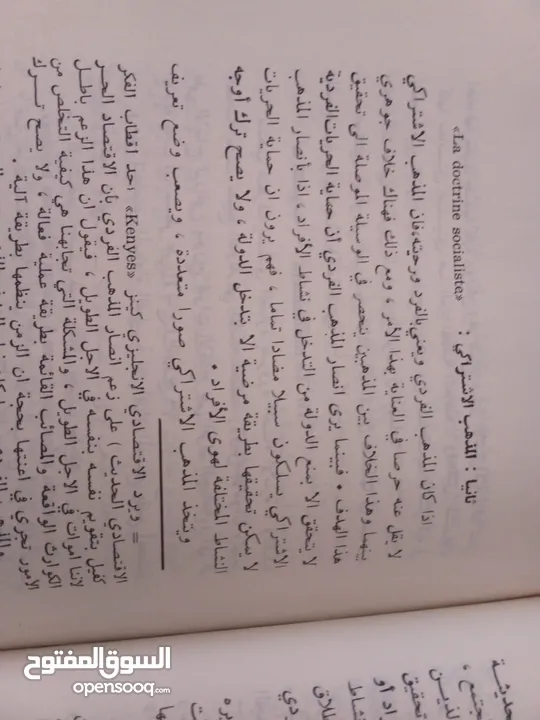 ثانيا : المذهب الاشتراكي :
«La doctrine socialiste»
اذا كان المذهب الفردي ويعني بالفرد ورحيته، فان المذهب الاشتراكي
لا يقل عنه حرصا في العناية بهذا الأمر ، ومع ذلك فهناك خلاف جوهري
بينهما وهذا الخلاف بين المذهبين ينحصر في الوسيلة الموصلة الى تحقيق
هذا الهدف • فبينما يرى انصار المذهب الفردي أن حماية الحريات الفردية
لا يتحقق الا بمنع الدولة من التدخل في نشاط الأفراد ، اذا بأنصار المذهب
الاشتراكي يسلكون سبيلا مضادا تماما ، فهم يرون ان حماية الحريات
لا يمكن تحقيقها بطريقة مرضية الا بتدخل الدولة ، ولا يصح ترك أوجه
النشاط المختلفة لهوى الأفراد •
ويتخذ المذهب الاشتراكي صورا متعددة ، ويصعب وضع تعريف
= ويرد الاقتصادي الانجليزي كينز «Kenyes» احد اقطاب الفكر
الاقتصادي الحديث ) على زعم انصار المذهب الفردي بان الاقتصاد الحر
كفيل بتقويم نفسه بنفسه في الاجل الطويل ، فيقول ان هذا الزعم باطل
لاننا اموات في الاجل الطويل ، والمشكلة التي تجابهنا هي كيفية التخلص من
الكوارث الواقعة والمصائب القائمة بطريقة عملية فعالة ، ولا يصح ترك
الامور تجري في اعنتها بحجة ان الزمن ينظمها بطريقة آلية .
حديثة
جتمع ،
لذين
تحقيق
راد أو
نشاط
طلاق
ردي
يره
السوق المفتوح
opensooq.com